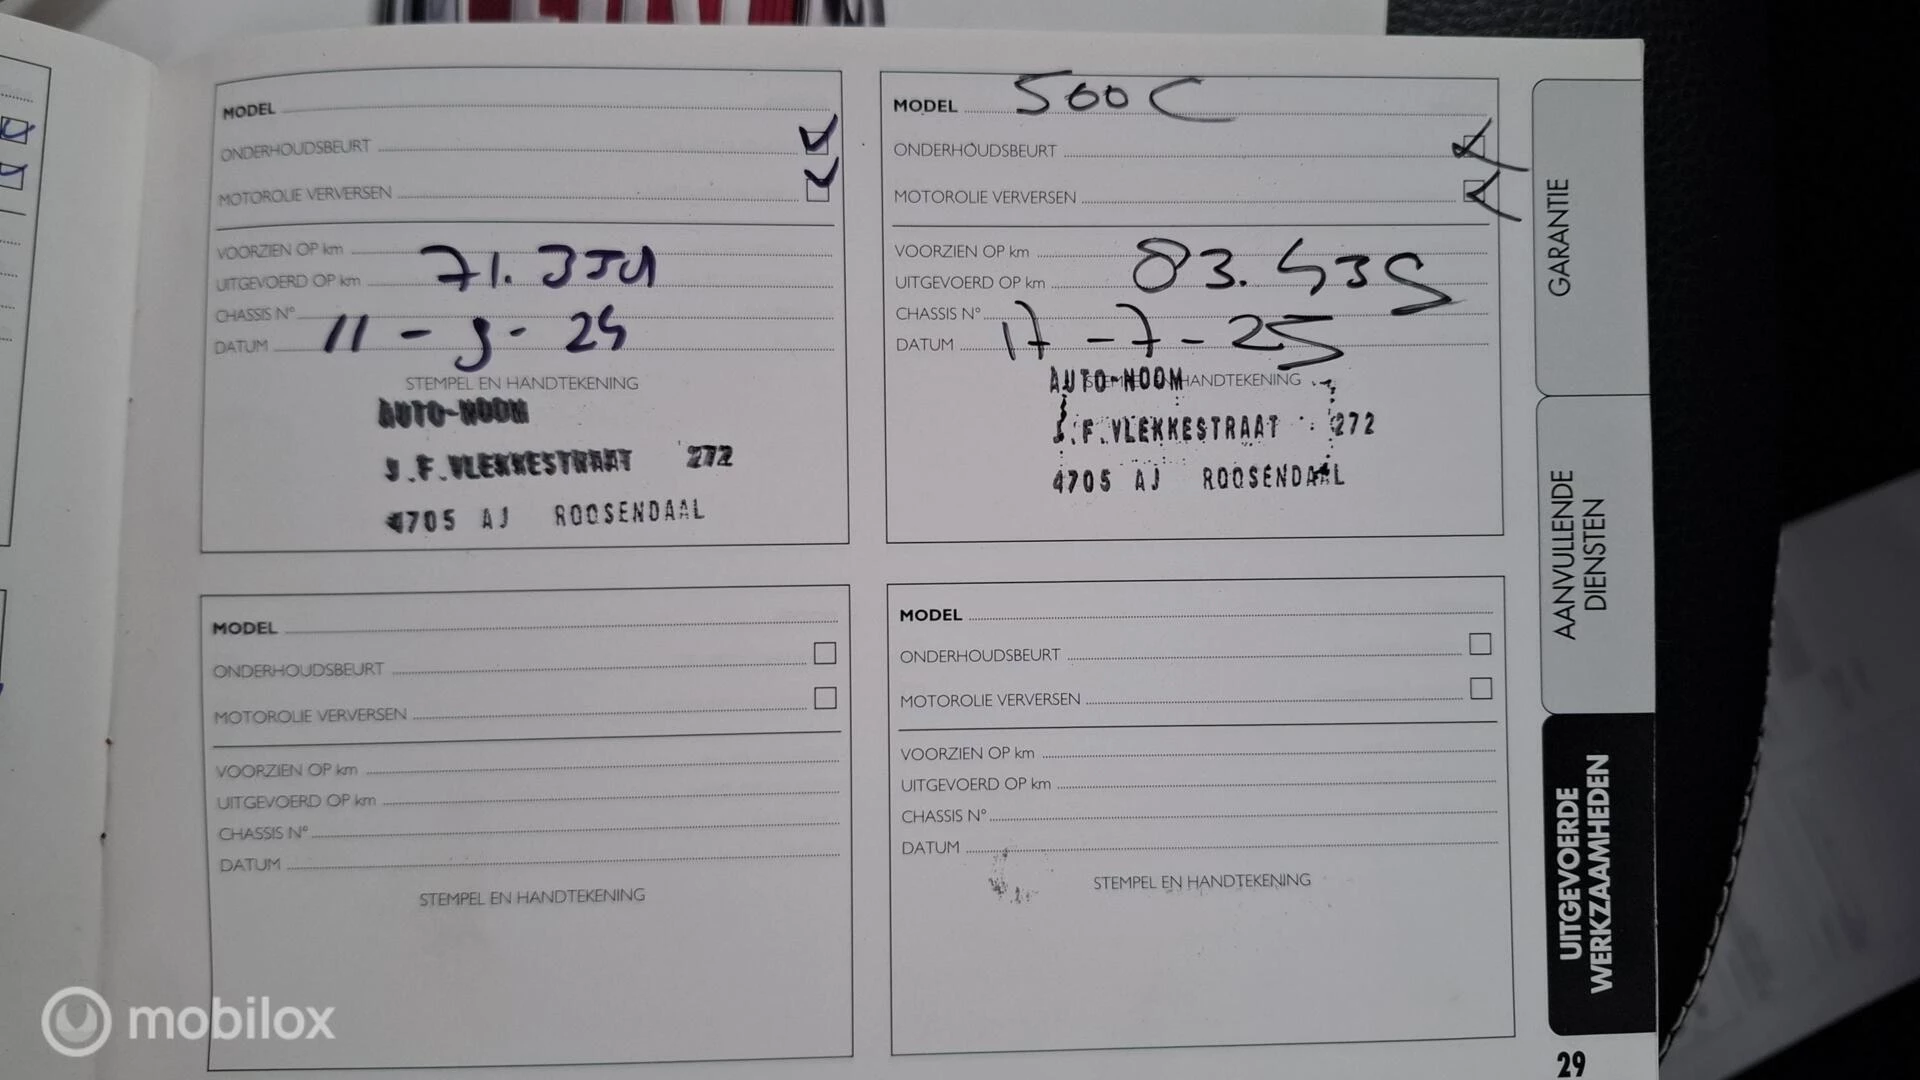 MODEL
ONDERHOUDSBEURT
MOTOROLIE VERVERSEN
VOORZIEN OP km
UITGEVOERD OP km
CHASSIS N°
DATUM 11 - 9 - 24
STEMPEL EN HANDTEKENING
AUTO-NOOM
J.F.VLEKKESTRAAT 272
4705 AJ ROOSENDAAL
MODEL 500C
ONDERHOUDSBEURT
MOTOROLIE VERVERSEN
VOORZIEN OP km
UITGEVOERD OP km 83.439
CHASSIS N°
DATUM 17 - 7 - 25
HANDTEKENING
AUTO-NOOM
J.F.VLEKKESTRAAT 272
4705 AJ ROOSENDAAL
MODEL
ONDERHOUDSBEURT
MOTOROLIE VERVERSEN
VOORZIEN OP km
UITGEVOERD OP km
CHASSIS N°
DATUM
STEMPEL EN HANDTEKENING
MODEL
ONDERHOUDSBEURT
MOTOROLIE VERVERSEN
VOORZIEN OP km
UITGEVOERD OP km
CHASSIS N°
DATUM
STEMPEL EN HANDTEKENING
GARANTIE
AANVULLENDE
DIENSTEN
UITGEVOERDE
WERKZAAMHEDEN
29
mobilox